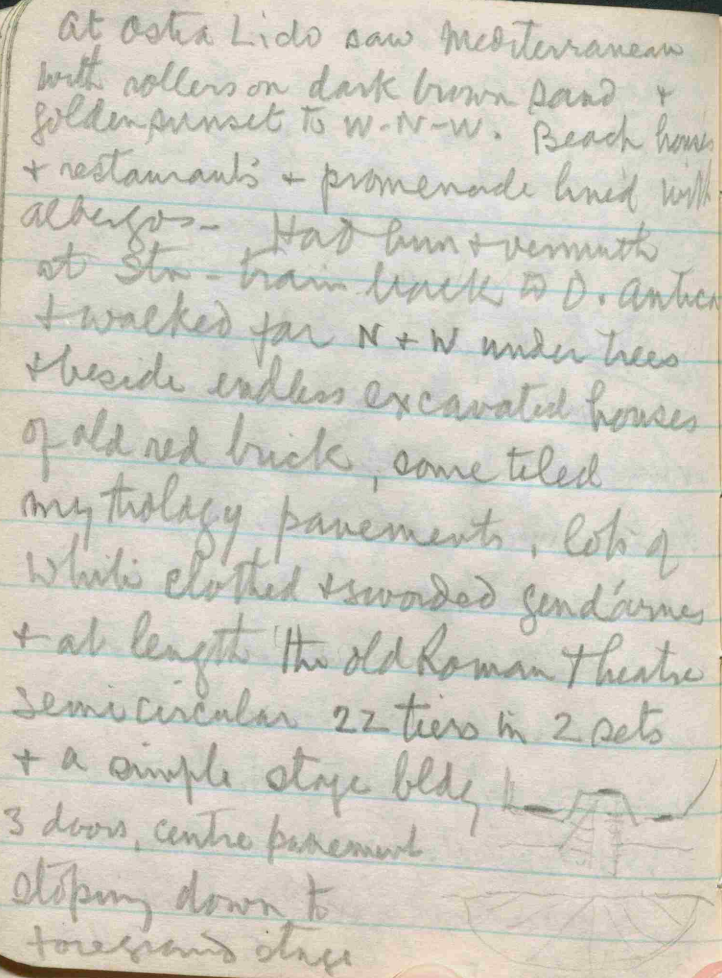 At Ostia Lido saw Mediterranean
with rollers on dark brown sand +
golden sunset to W-N-W. Beach houses
+ restaurants + promenade lined with
albergos - Had bun + vermuth
at Stn - train back to O. Antica
+ walked far N + W under trees
+ beside endless excavated houses
of old red brick, some tiled
mythology pavements, lots of
white clothed + sworded gend'armes
+ at length the old Roman Theatre
semicircular 22 tiers in 2 sets
+ a simple stage bldg
3 doors, centre pavement
sloping down to
foreground stage